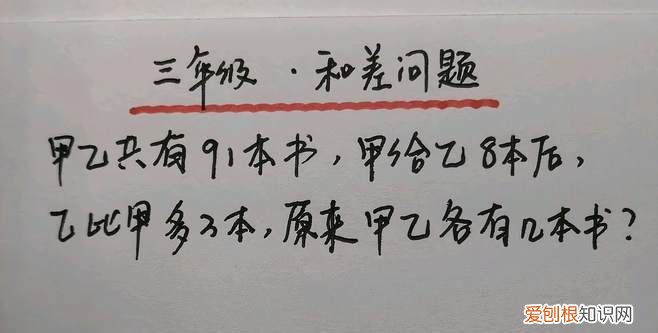 三年级·和差问题
甲乙共有91本书，甲给乙8本后，
乙比甲多3本，原来甲乙各有几本书？
爱刨根知识网